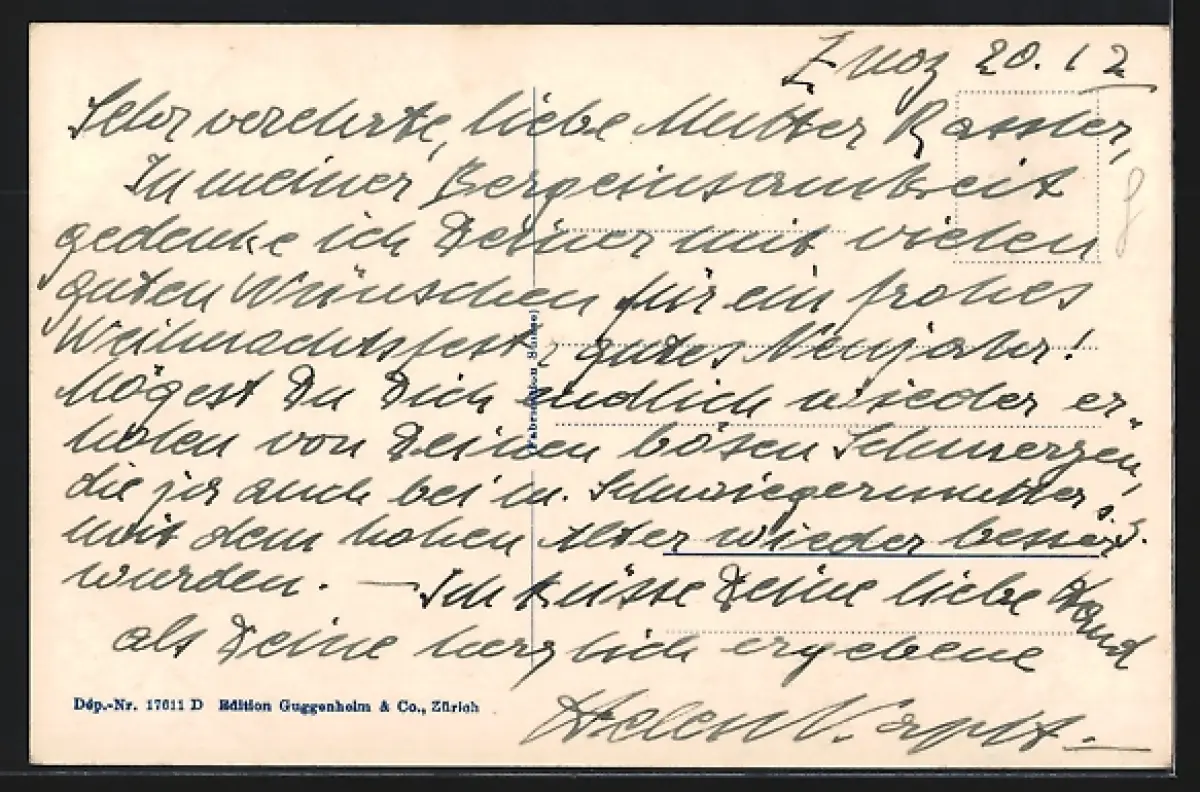 Zuoz 20.12
Sehr verehrte, liebe Mutter Rassler,
In meiner Bergeinsamkeit
gedenke ich Deiner mit vielen
guten Wünschen für ein frohes
Weihnachtsfest, gutes Neujahr!
Mögest Du Dich endlich wieder er-
holen von Deinen bösen Schmerzen,
die ja auch bei m. Schwiegermutter,
mit dem hohen Alter wieder besser
wurden. — Ich küsse Deine liebe Hand
als Deine herzlich ergebene
Helen
(Fabrication Suisse)
Dép.-Nr. 17611 D Edition Guggenheim & Co., Zürich